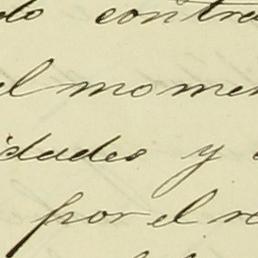 do contra
el momen
idades y
por el re